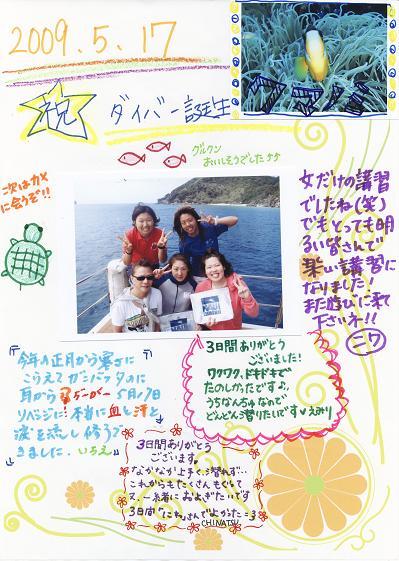 2009.5.17
祝 ダイバー誕生
グルクン
おいしそうでした
次はカメ
に会うぞ!!
女だけの講習
でしたね(笑)
でもとっても明
るい皆さんで
楽しい講習に
なりました!
また遊びに来て
下さいネ!!
ニワ
今年の正月から寒さに
こらえてガンバッタのに
耳から
5月17日
リベンジに! 本当に血と汗と
涙を流し修了で
きました. いちえ
3日間ありがとう
ございました!
ワクワク、ドキドキで
たのしかったですよ♪
うちなんちゅなので
どんどん潜りたいです♥えみり
3日間ありがとう
ございます。
なかなか上手く潜れず…
これからもたくさんもぐって
又、一緒におよぎたいです
3日間"にわ"さんでよかった=3
CHINATSU